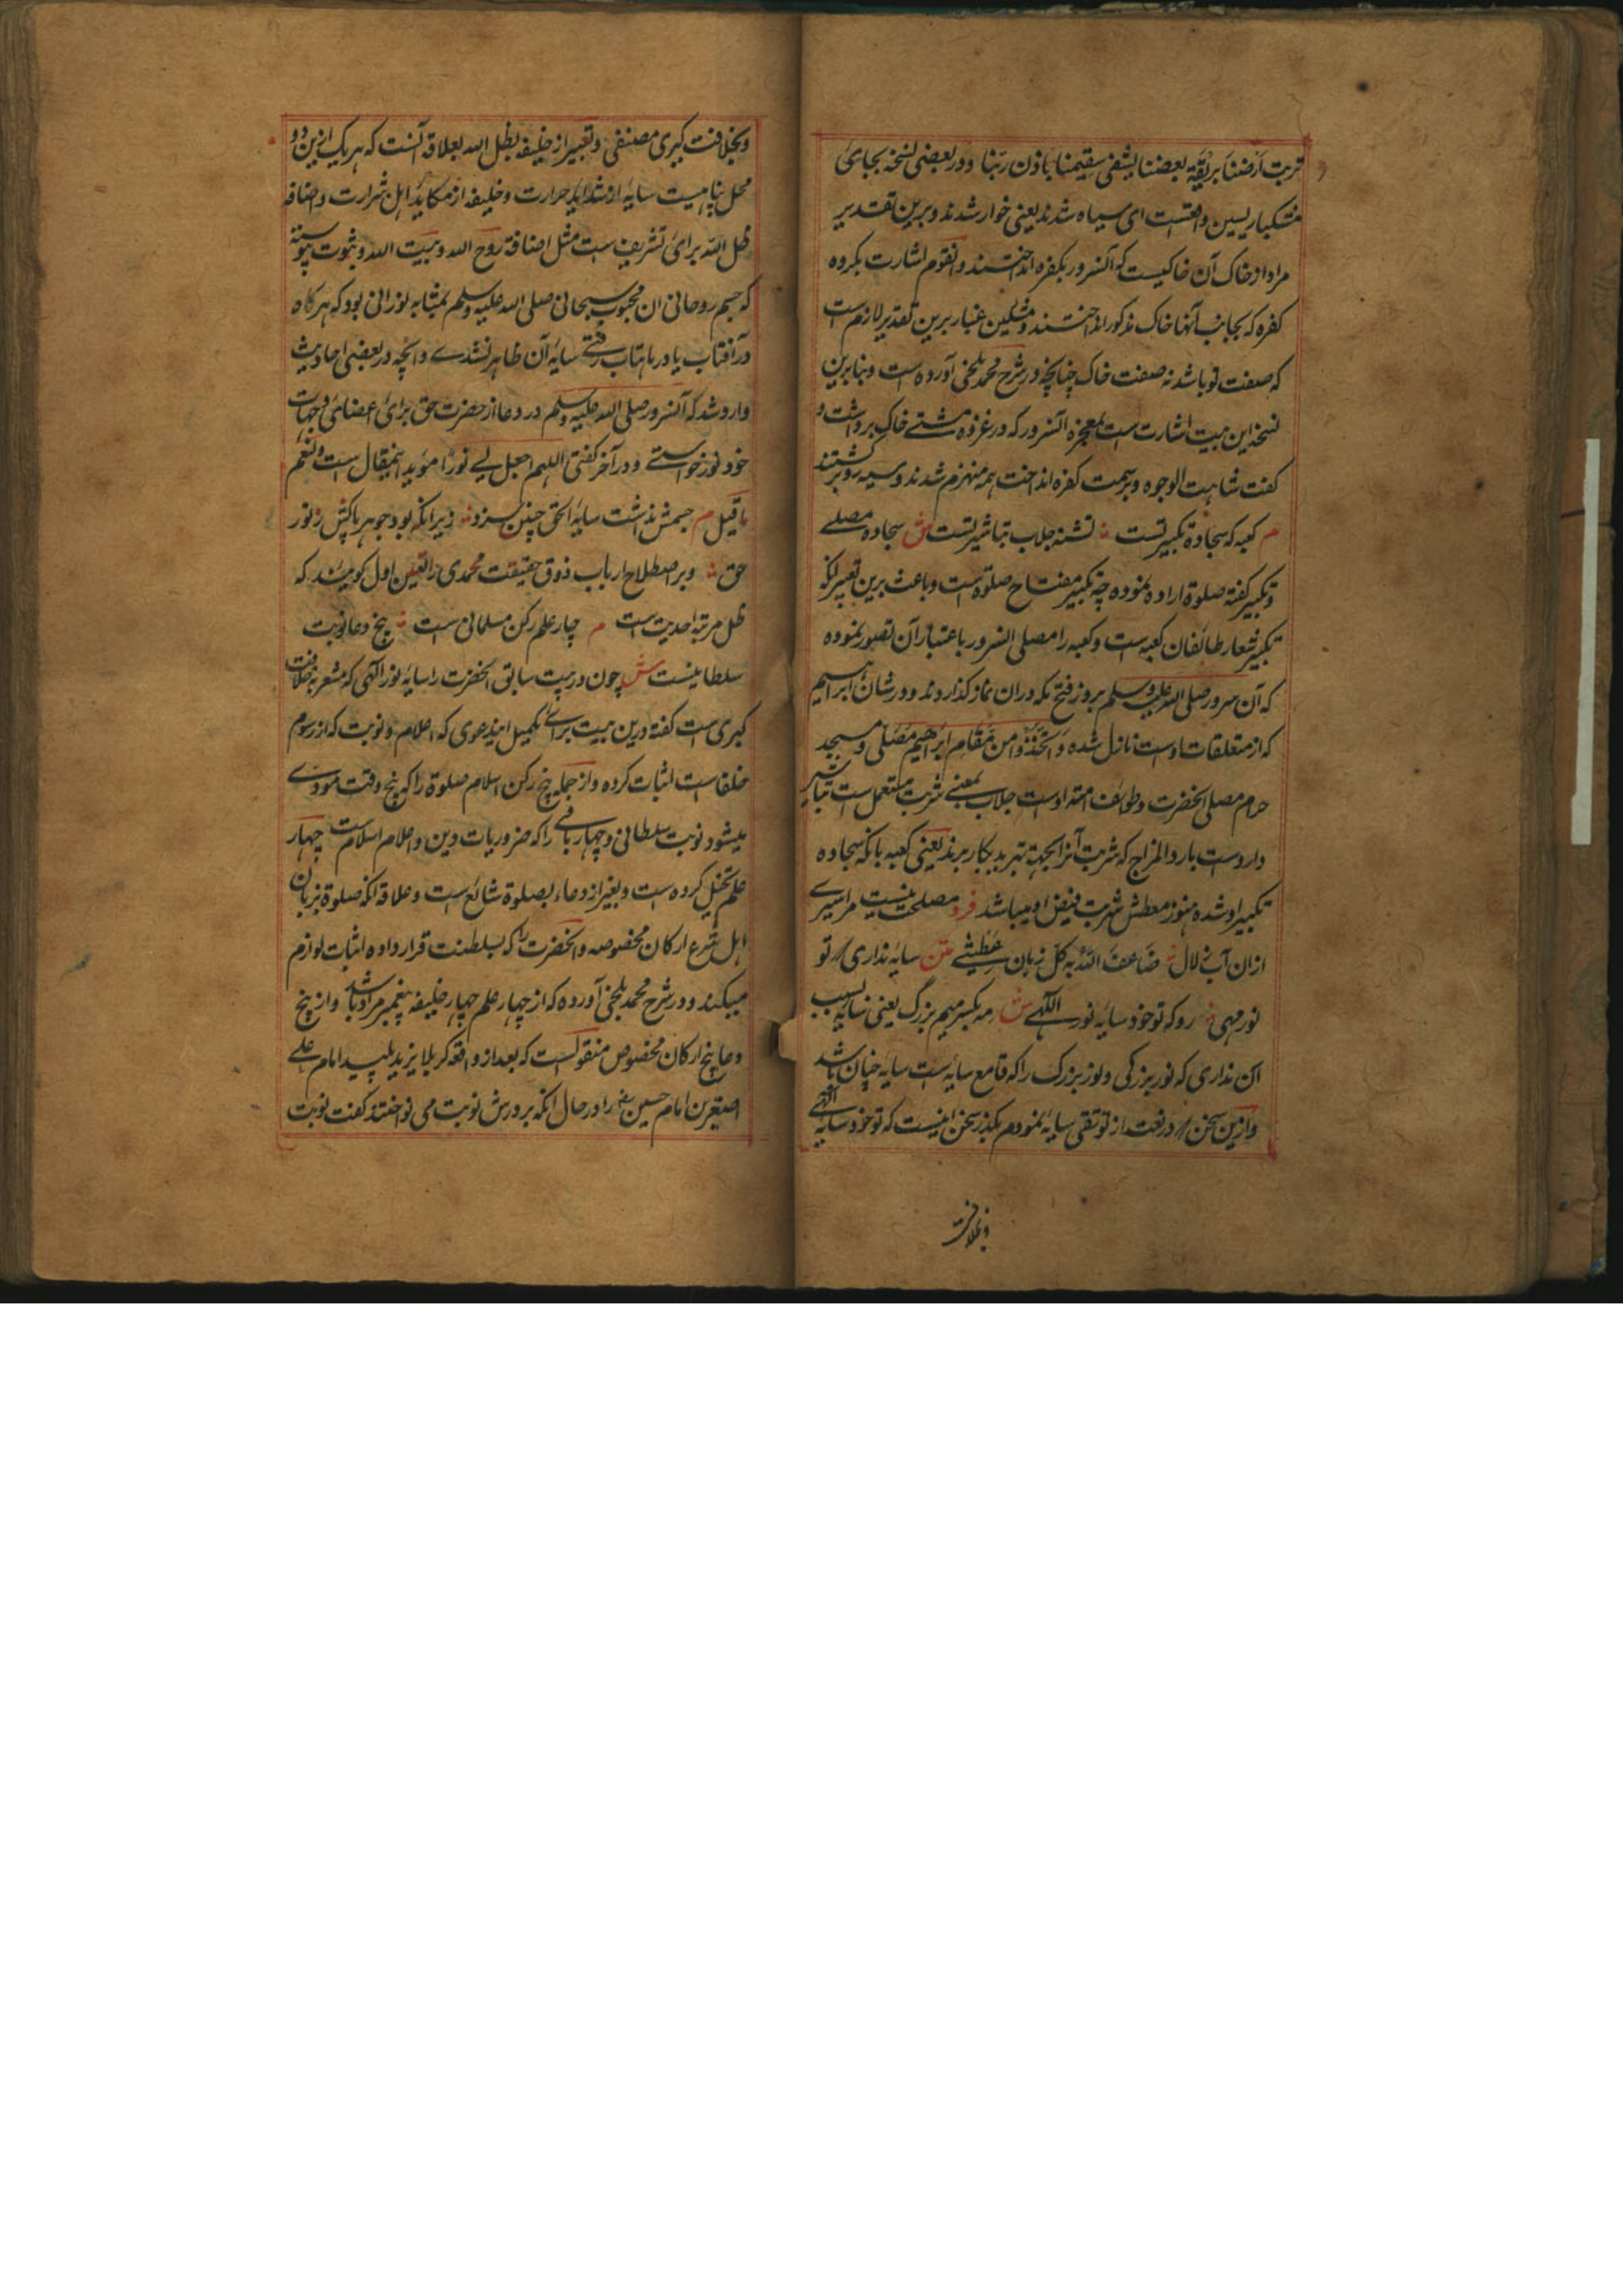 تربت ارضنا بریقة بعضنا یشفی سقیمنا باذن ربنا و در بعضی نسخه بجای
مشکبار پسین واقعست ای سیاه شدند یعنی خوار شدند و برین تقدیر
مراد از خاک آن خاکیست که آنسرور بکفره انداختند و القوم اشارت بگروه
کفره که بجانب آنها خاک مذکور انداختند و مشکین غبار برین تقدیر لازم است
که صفت تو باشد نه صفت خاک چنانچه در شرح محمد بلخی آورده است و بنابرین
نسخه این بیت اشارت است بمعجزه آنسرور که در غزوه مشتے خاک برداشت و
گفت شاهت الوجوه و بر سمت کفره انداخت همه منهزم شدند و سیه رو برگشتند
م کعبه که سجاده تکبیر تست تشنه جلاب تباشیر تست ش سجاده مصلے
و تکبیر گفته صلوة اراده نموده چه تکبیر مفتاح صلوة است و باعث برین تعبیر آنکه
تکبیر شعار طائفان کعبه است و کعبه را مصلی آنسرور باعتبار آن تصور نموده
که آن سرور صلی الله علیه وسلم بروز فتح مکه دران نماز گذاردند و در شان ابراهیم
که از متعلقات اوست نازل شده واتخذوا من مقام ابراهیم مصلی و مسجد
حرام مصلی آنحضرت و طوائف امت اوست جلاب بمعنے شربت مستعمل است تباشیر
داروست بارد المزاج که شربت آنرا بجهة تبرید بکار برند یعنی کعبه باآنکه سجاده
تکبیر او شده هنوز معطش شربت فیض او میباشد فرد مصلحت نیست مرا سیرے
ازان آب زلال ضاعف الله به کل زمان عطشے متن سایه نداری تو
نور مهی رو که تو خود سایه نور اللهے ش مه بکسر میم بزرگ یعنی سایه بسبب
آن نداری که نور بزرگی و نور بزرگ را که قامع سایه است سایه چنان باشد
و ازین سخن در نعت از تو نفی سایه نمودم بگذر سخن اینست که تو خود سایه الهی
وبخلافت
وبخلافت کبری متصفی و تعبیر از خلیفه بظل الله بعلاقه آنست که هر یک ازین دو
محل پناهیست سایه از شداید حرارت و خلیفه از مکاید اهل شرارت و اضافه
ظل الله برای تشریف است مثل اضافة روح الله و بیت الله و بثبوت پیوسته
که جسم روحانی ان محبوب سبحانی صلی الله علیه وسلم بمثابه نورانی بود که هر گاه
در آفتاب یا در ماهتاب رفتے سایه آن ظاهر نشدے و آنچه در بعضی احادیث
وارد شد که آنسرور صلی الله علیه وسلم در دعا از حضرت حق برای اعضای و جهات
خود نور خواستے و در آخر گفتی اللهم اجعل لے نورا موید اینمقال است و نعم
ما قیل م جسمش نذاشت سایه الحق چنین سزد زیرا که بود جوهر پاکش ز نور
حق و بر اصطلاح ارباب ذوق حقیقت محمدی را تعین اول گویند که
ظل مرتبه احدیت است م چار علم رکن مسلمانی است پنج دعا نوبت
سلطانیست ش چون در بیت سابق آنحضرت را سایه نور الهی که مشعر به خلافت
کبری است گفته درین بیت براے تکمیل ایندعوی که اعلام و نوبت که از رسوم
خلفاست اثبات کرده و از جمله پنج رکن اسلام صلوة را که پنج وقت مودی
میشود نوبت سلطانی و چهار باقی را که ضروریات دین و اعلام اسلامست چهار
علم تخیل کرده است و تعبیر از دعاء بصلوة شائع است و علاقه آنکه صلوة بزبان
اهل شرع ارکان مخصوصه و آنحضرت را که بسلطنت قرار داده اثبات لوازم
میکند و در شرح محمد بلخی آورده که از چهار علم چهار خلیفه پیغمبر مراد باشد و از پنج
دعا پنج ارکان مخصوص منقولست که بعد از واقعه کربلا یزید پلید امام علے
اصغر بن امام حسین را در حال آنکه بر درش نوبت می نواختند گفت نوبت